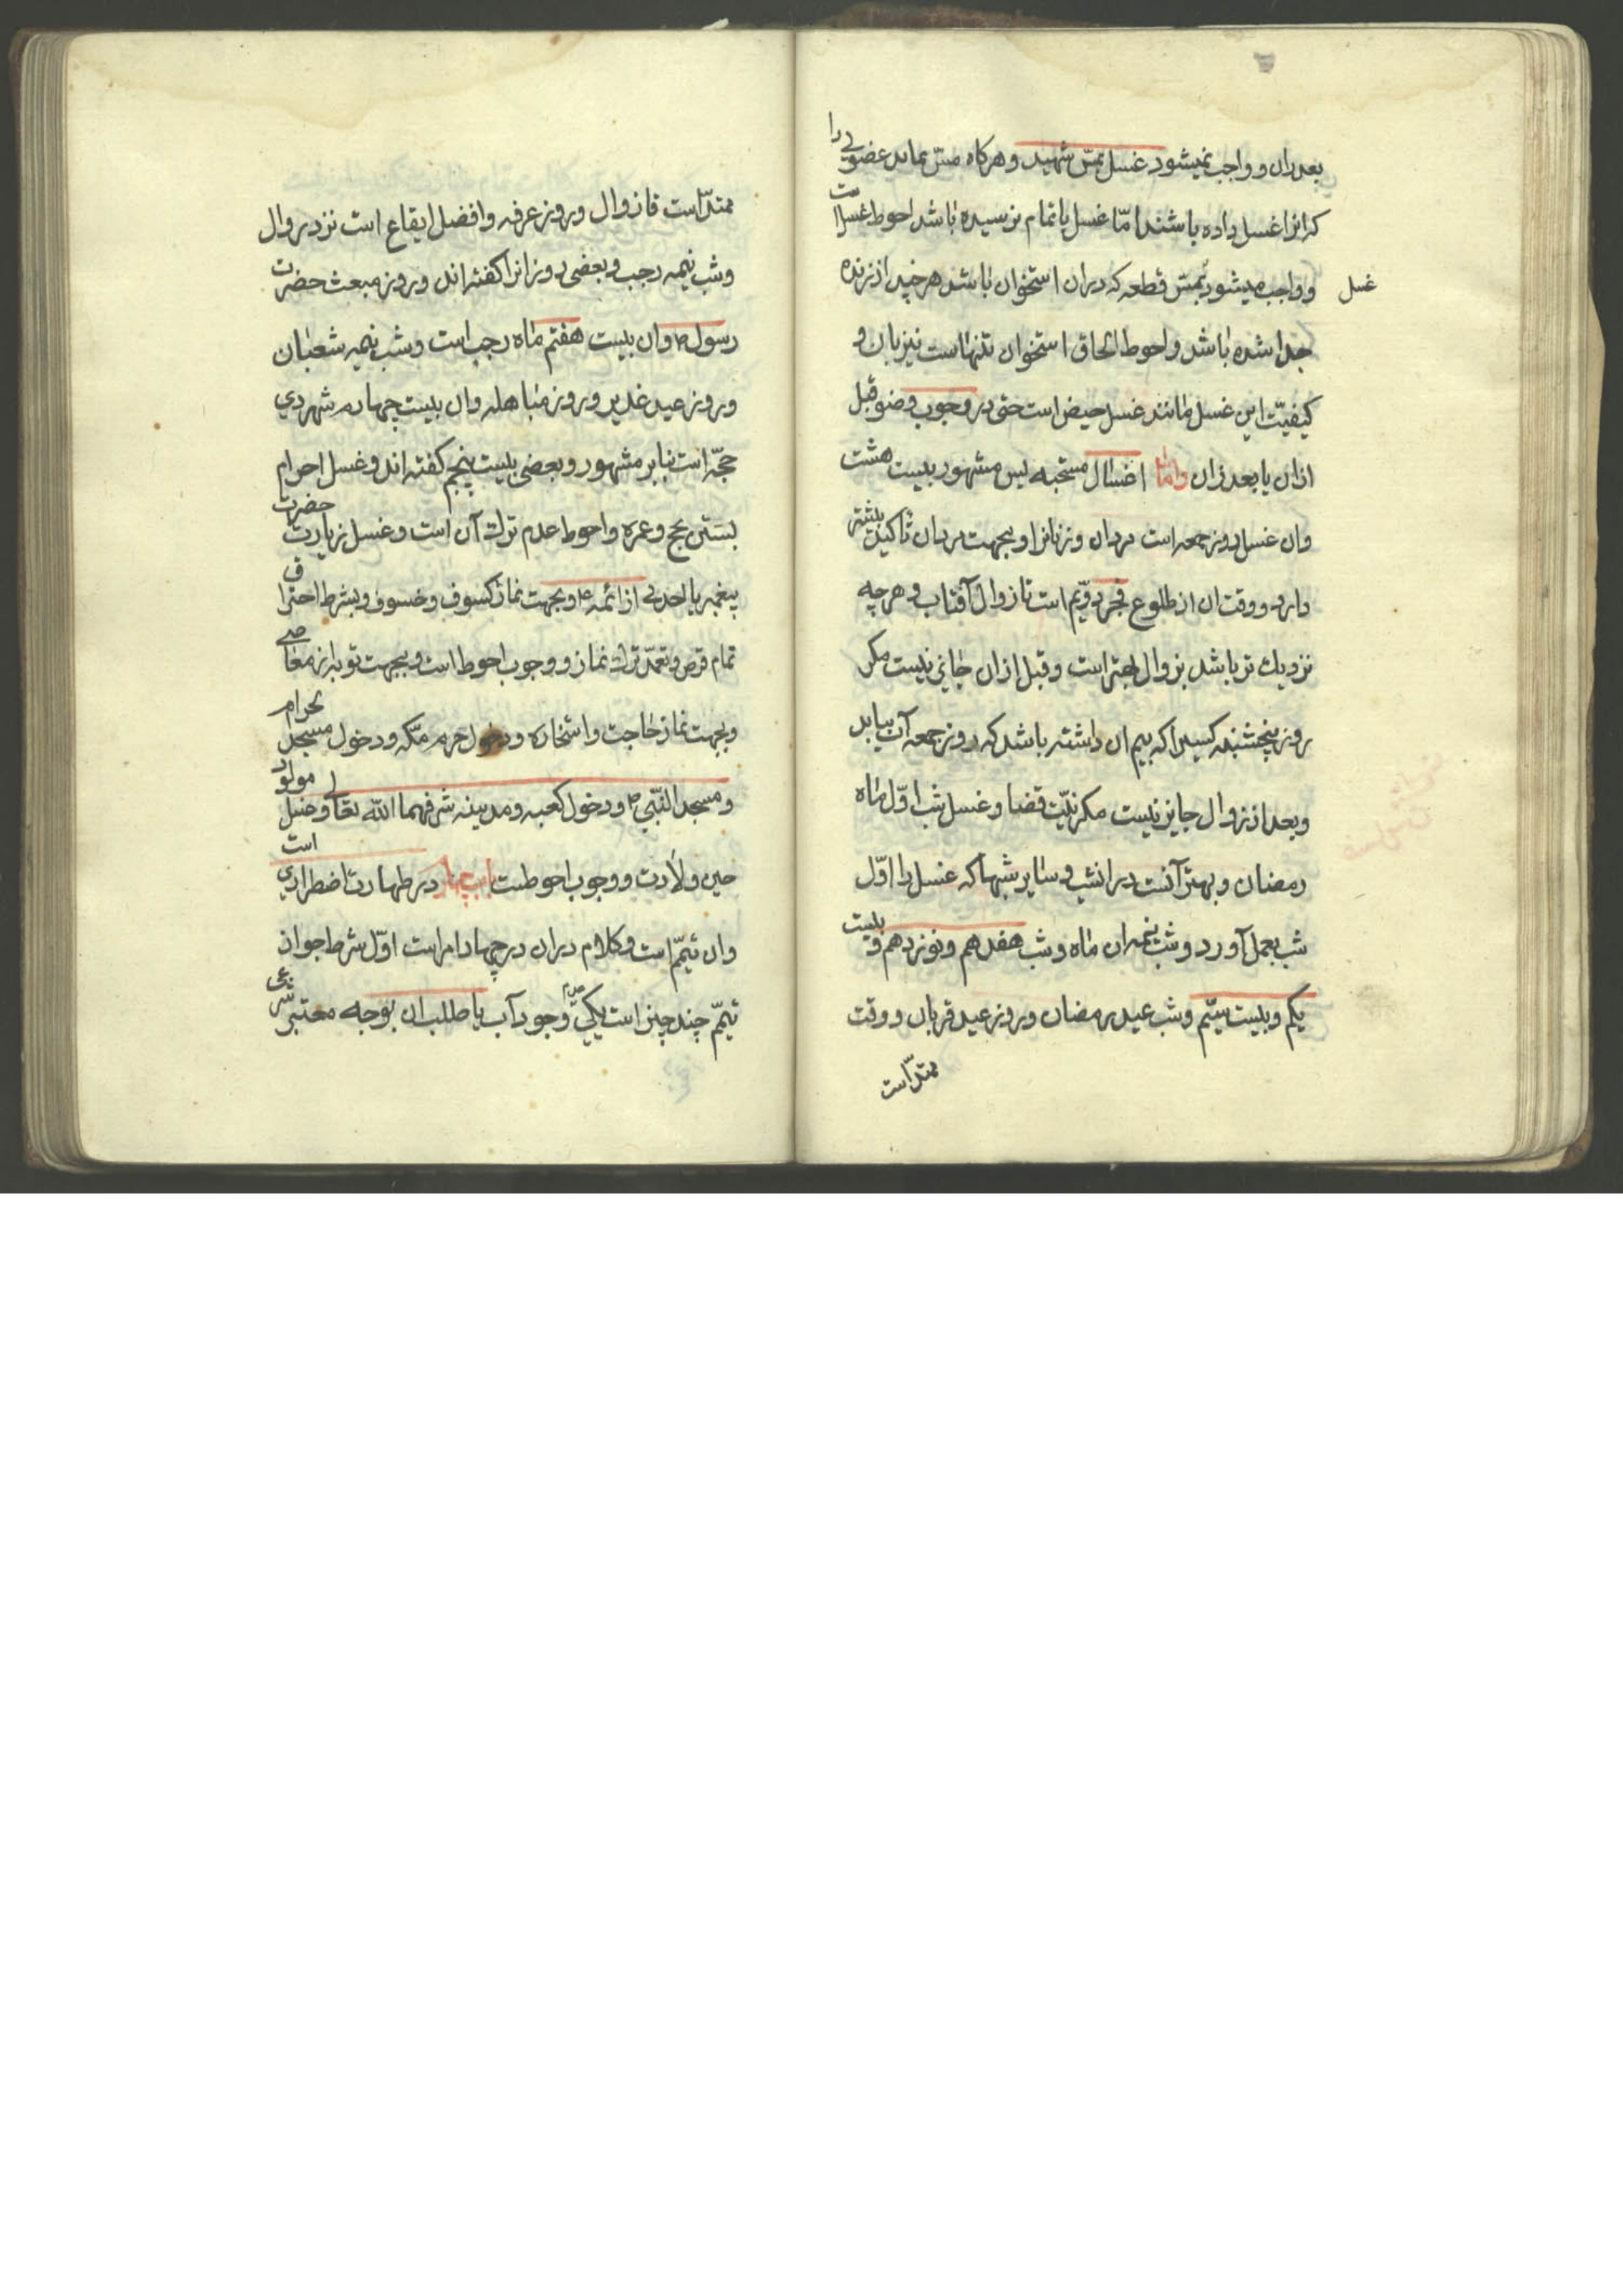 بعد ازان و واجب نمیشود غسل بمسّ شهید و هرکاه مسّ نماید عضوی را
که انرا غسل داده باشند امّا غسل باتمام نرسیده باشد احوط غسل است
و واجب میشود بمسّ قطعه که دران استخوان باشد هرچند از زنده
غسل
جدا شده باشد و احوط الحاق استخوان تنهاست نیز بان و
کیفیّت این غسل مانند غسل حیض است حتی در وجوب وضو قبل
ازان یا بعد ازان و امّا اغسال مستحبه پس مشهور بیست هشت
وان غسل روز جمعه است مردان و زنانرا و بجهت مردان تاکید بیشتر
دارد و وقت ان از طلوع فجر دوّیم است تا زوال آفتاب و هرچه
نزدیك تر باشد بزوال بهتر است و قبل ازان جایز نیست مکر
روز پنجشنبه کسیرا که بیم ان داشته باشد که روز جمعه آب نیابد
و بعد از زوال جایز نیست مکر بنیّت قضا و غسل شب اوّل ماه
رمضان و بهتر آنست در انشب و سایر شبها که غسل را اوّل
شب بعمل آورد و شب نیمه ان ماه و شب هفدهم و نوزدهم و بیست
یکم و بیست سیّم و شب عید رمضان و روز عید قربان و وقت
ممتدّ است
ممتدّ است تا زوال و روز عرفه و افضل ایقاع است نزد زوال
و شب نیمه رجب و بعضی روز انرا کفته اند و روز مبعث حضرت
رسول ص وان بیست هفتم ماه رجب است و شب نیمه شعبان
و روز عید غدیر و روز مباهله وان بیست چهارم شهر ذی
حجّه است بنابر مشهور و بعضی بیست پنجم کفته اند و غسل احرام
بستن بحج و عمره و احوط عدم ترك آن است و غسل زیارت حضرت
پیغمبر یا احدی از ائمه ع و بجهت نماز کسوف و خسوف و بشرط احتراق
تمام قرص و تعمّد ترك نماز و وجوب احوط است و بجهت توبه از معاصی
و بجهت نماز حاجت و استخاره و دخول حرم مکّه و دخول مسجد لحرام
و مسجد النّبی ص و دخول کعبه و مدینه شرفهما الله تعالی و غسل مولود
حین ولادت و وجوب احوطست باب چهارم در طهارت اضطراری است
وان تیمّم است و کلام دران در چهار امر است اوّل شرط جواز
تیمّم چند چیز است یکی عدم وجود آب با طلب ان بوجه معتبر شرعی